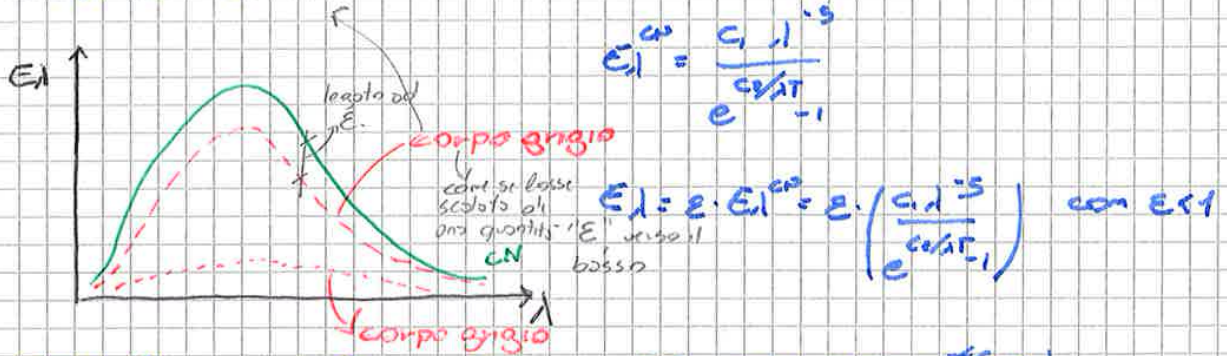 Eλ
legato ad
ε.
corpo grigio
come se fosse
scalato di
una quantità "ε" verso il
basso
CN
λ
corpo grigio
Eλ^CN = C₁ λ^-5 / (e^(C₂/λT) -1)
Eλ = ε · Eλ^CN = ε · (C₁ λ^-5 / (e^(C₂/λT) -1)) con ε<1